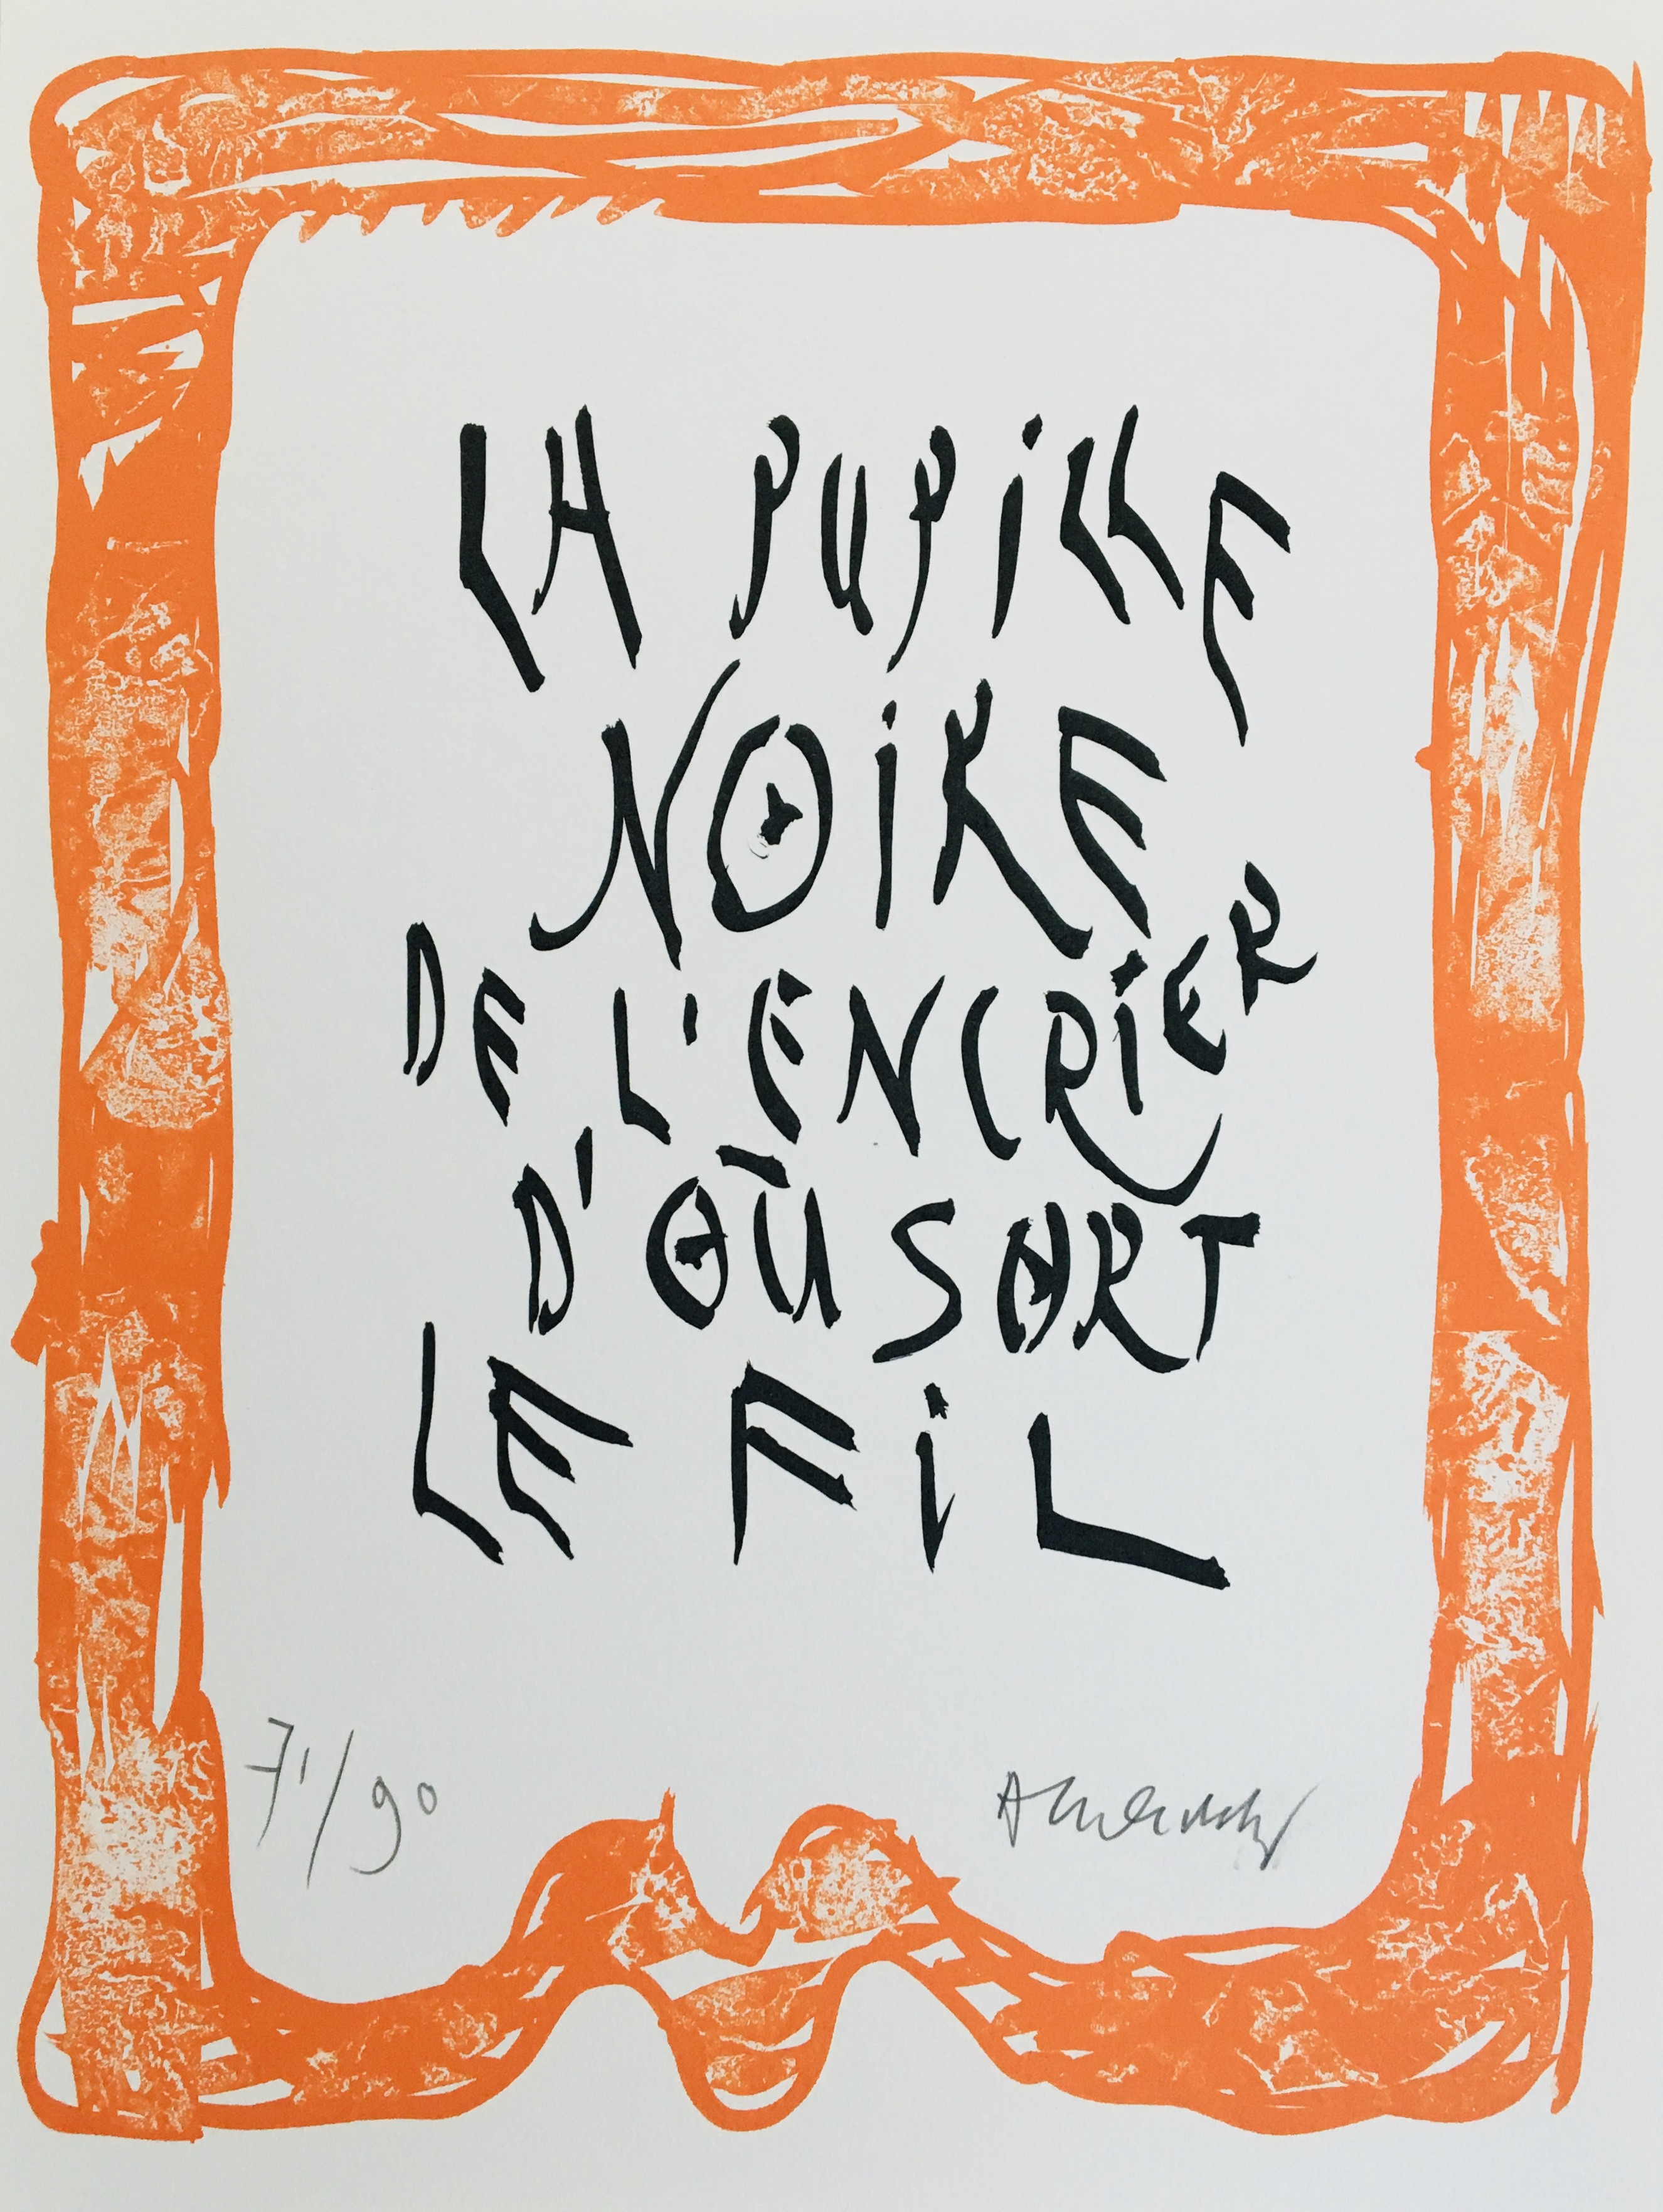 LA PUPiLLE
NOiRE
DE L'ENCRiER
D'OÙ SORT
LE FiL
71/90
Alechinsky